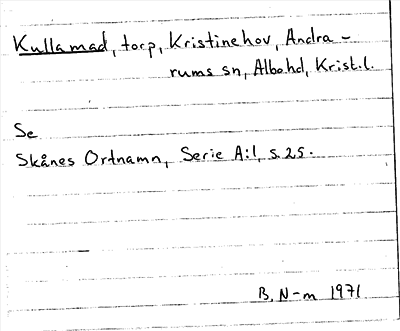 Kullamad, torp, Kristinehov, Andra-
rums sn, Albohd, Krist.l.
Se
Skånes Ortnamn, Serie A:1, s.25.
B. N-m 1971